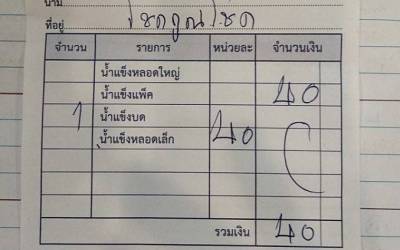 นาม
ที่อยู่ โชคคูณโชค
จำนวน รายการ หน่วยละ จำนวนเงิน
น้ำแข็งหลอดใหญ่
น้ำแข็งแพ็ค 40
1 น้ำแข็งบด
น้ำแข็งหลอดเล็ก 40
รวมเงิน 40